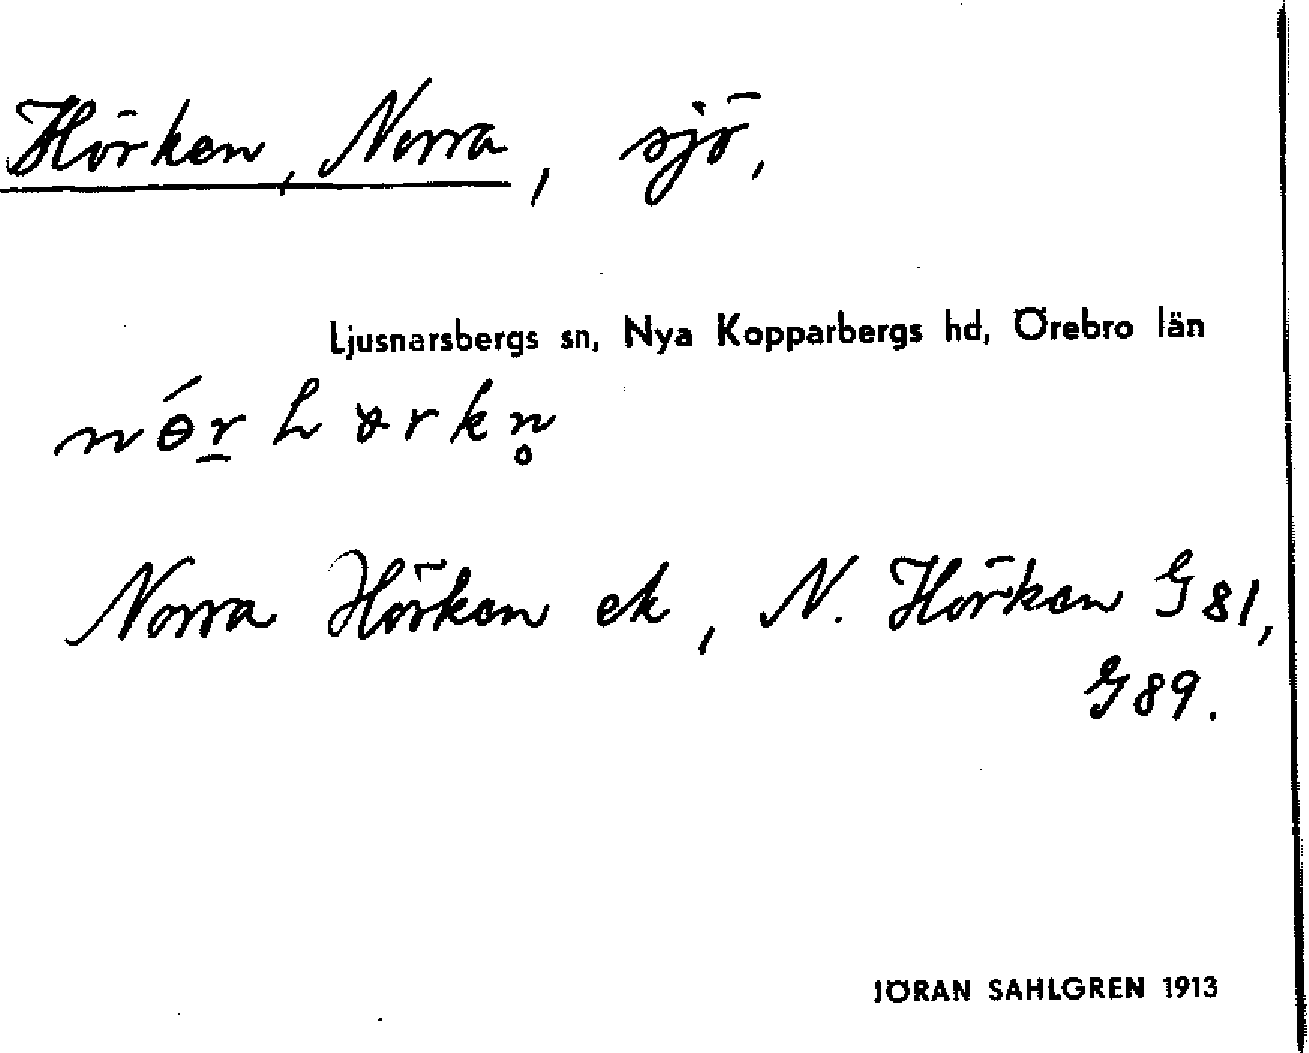 Hörken, Norra, sjö,
Ljusnarsbergs sn, Nya Kopparbergs hd, Örebro län
nǿr̲ hɤrkn̥
Norra Hörken ek, N. Hörken G 81,
G 89.
JÖRAN SAHLGREN 1913